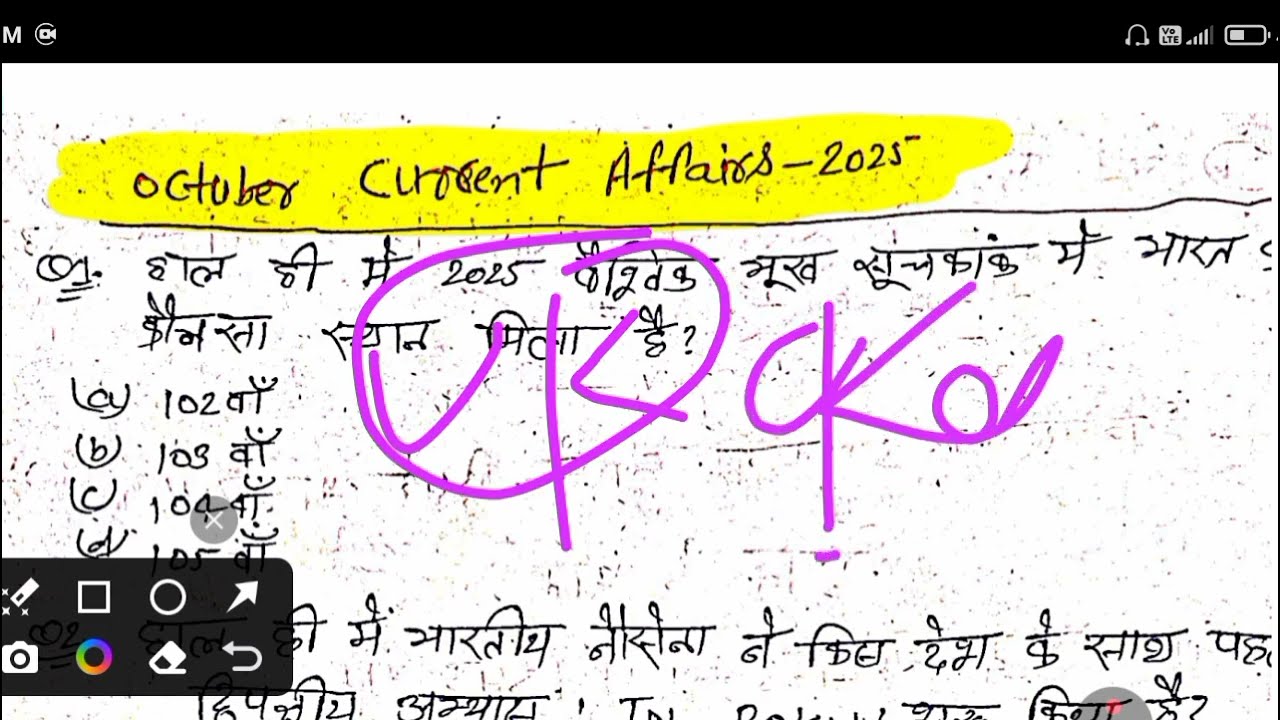 M
Vo LTE
October Current Affairs-2025
Q1. हाल ही में 2025 वैश्विक भूख सूचकांक में भारत
कौनसा स्थान मिला है?
(a) 102वाँ
(b) 103 वाँ
(c) 104वाँ
(d) 105 वाँ
Q2. हाल ही में भारतीय नौसेना ने किस देश के साथ
द्विपक्षीय अभ्यास